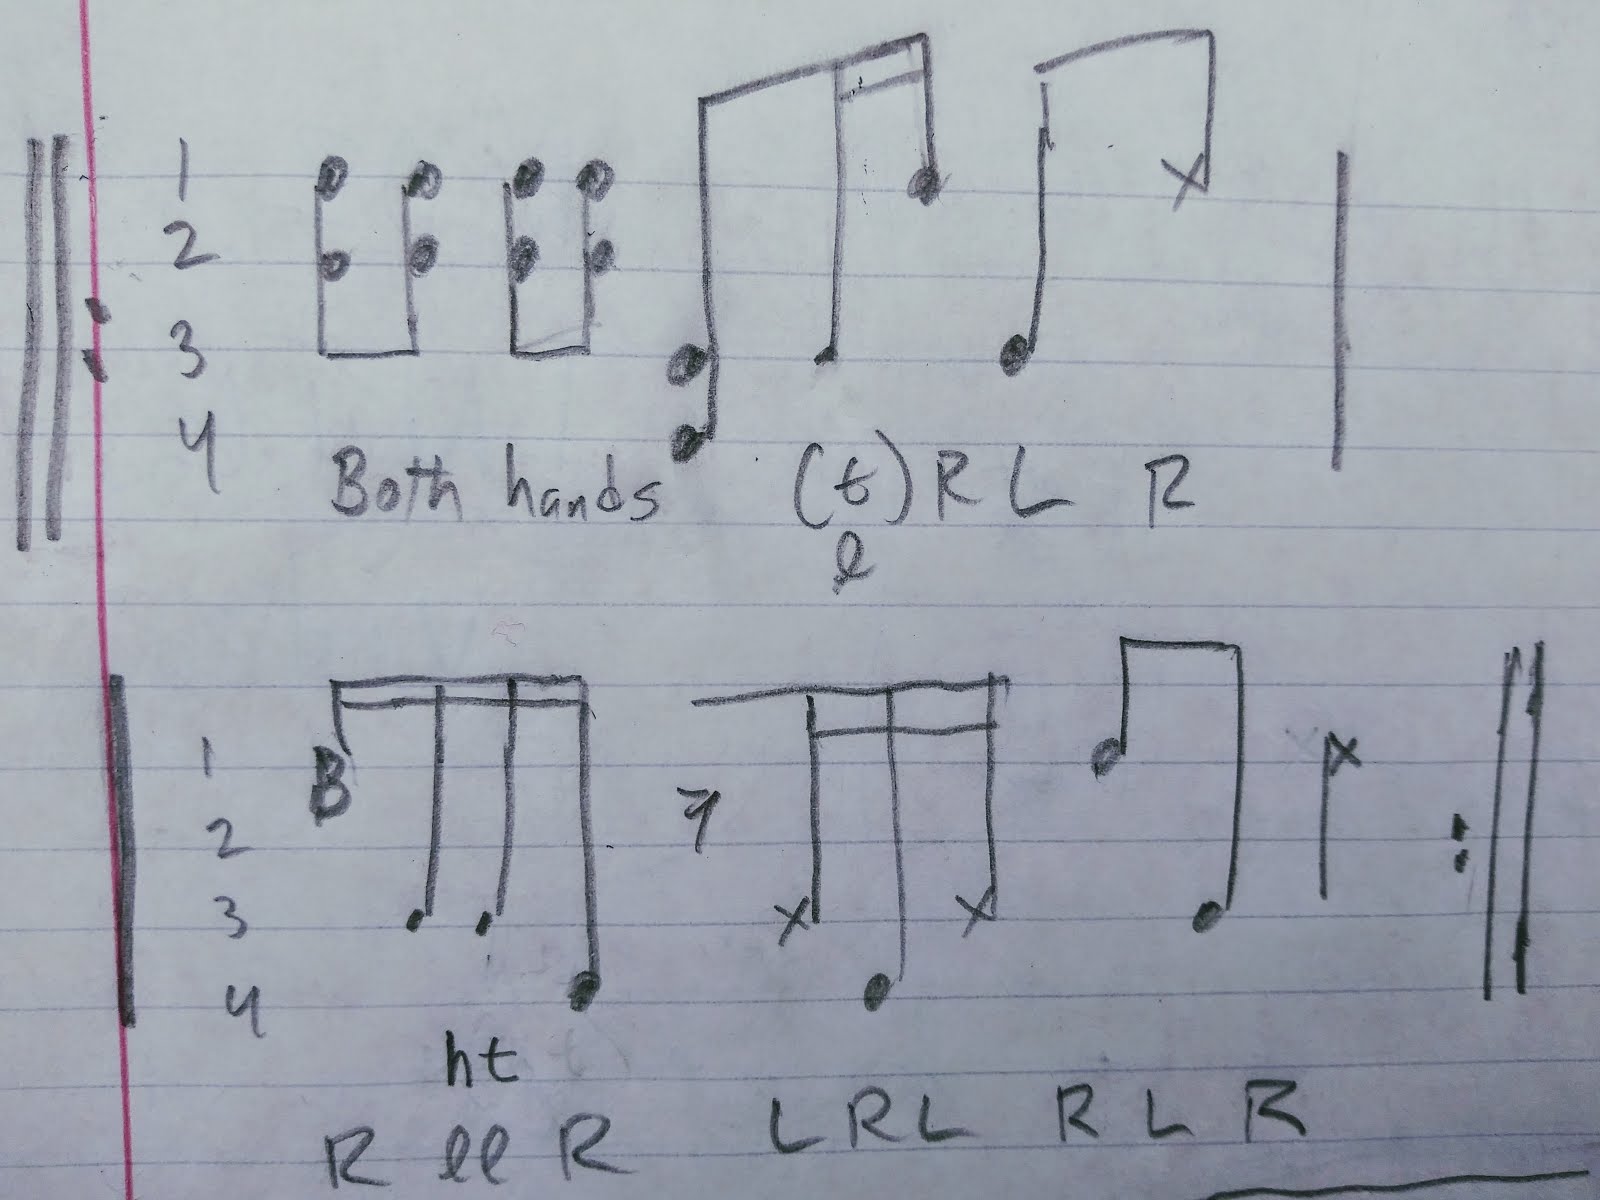 1
2
3
4
Both hands (t) R L R
l
1
B
2
3
4
ht
R ll R L R L R L R